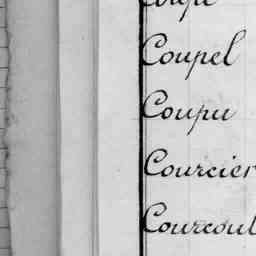 Coupel
Coupu
Courcier
Courcoul